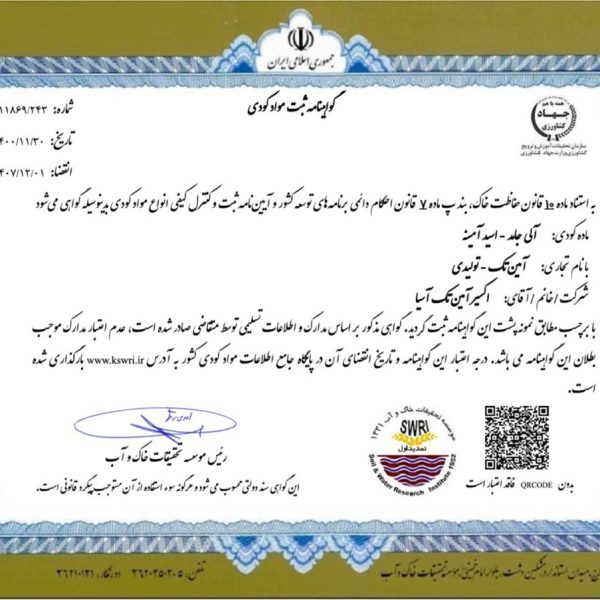 جمهوری اسلامی ایران
گواهینامه ثبت مواد کودی
شماره: ۱۱۸۶۹/۲۴۳
تاریخ: ۴۰۰/۱۱/۳۰
انقضاء: ۴۰۷/۱۲/۰۱
همه با هم
جهاد
کشاورزی
سازمان تحقیقات آموزش و ترویج
کشاورزی وزارت جهاد کشاورزی
به استناد ماده ۱۰ قانون حفاظت خاک، بند پ ماده ۷ قانون احکام دائمی برنامه های توسعه کشور و آیین نامه ثبت و کنترل کیفی انواع مواد کودی بدینوسیله گواهی می شود
ماده کودی: آلی جامد - اسید آمینه
با نام تجاری: آمین تک - تولیدی
شرکت / خانم / آقای: اکسیر آمین تک آسیا
با برچسب مطابق نمونه پشت این گواهینامه ثبت گردید. گواهی مذکور بر اساس مدارک و اطلاعات تسلیمی توسط متقاضی صادر شده است، عدم اعتبار مدارک موجب
بطلان این گواهینامه می باشد. درجه اعتبار این گواهینامه و تاریخ انقضای آن در پایگاه جامع اطلاعات مواد کودی کشور به آدرس www.kswri.ir بارگذاری شده
است.
رئیس موسسه تحقیقات خاک و آب
این گواهی سند دولتی محسوب می شود و هرگونه سوء استفاده از آن مستوجب پیگرد قانونی است.
موسسه تحقیقات خاک و آب ۱۳۳۱
SWRI
تمدید اول
Soil & Water Research Institute 1952
بدون QRCODE فاقد اعتبار است
میدان استاندارد، مشکین دشت، بلوار امام خمینی، موسسه تحقیقات خاک و آب
تلفن: ۵-۳۶۲۰۳۵۰۲ دورنگار: ۳۶۲۱۰۱۲۱